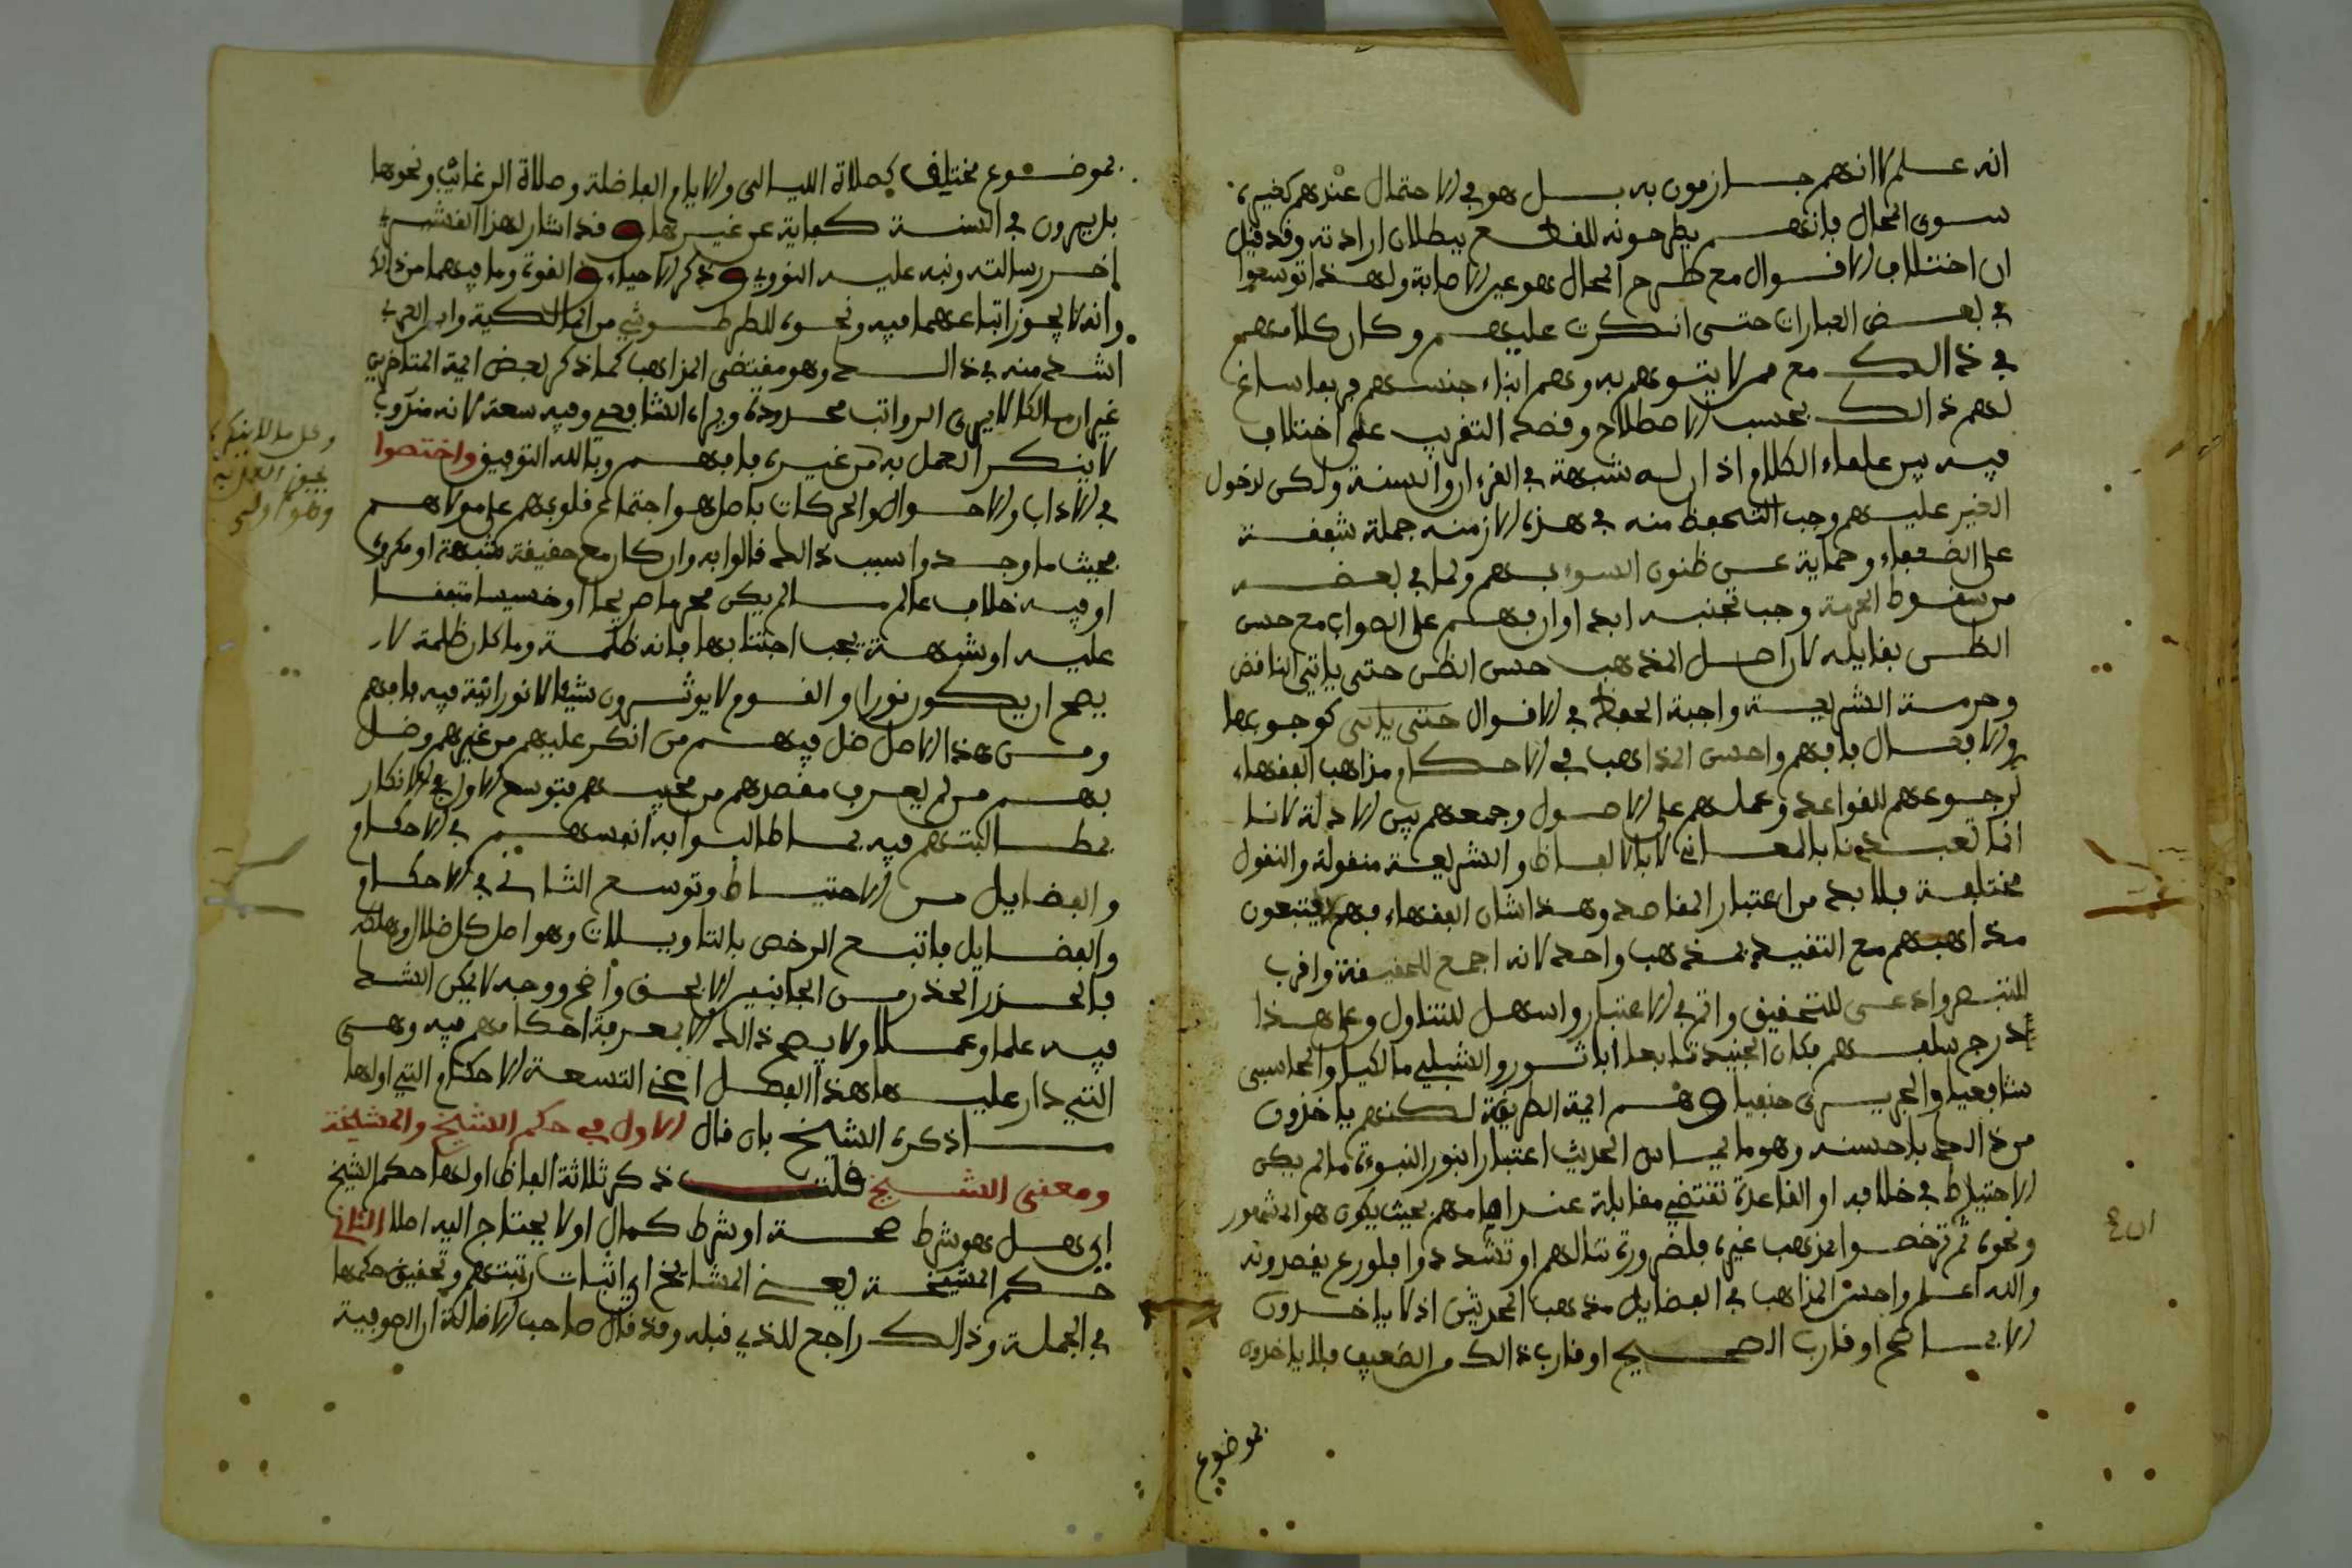 انه علم لا انهم جازمون به بل هو في الاحتمال عندهم كغيره
سوى المحال فانهم يطرحونه للقطع ببطلان ارادته وقد قيل
ان اختلاف الاقوال مع طرح المحال هو عين الاصابة ولهذا توسعوا
في بعض العبارات حتى انكرت عليهم وكان كلامهم
في ذالك مع من لا يتوهم به وهم ابناء جنسهم فربما ساغ
لهم ذالك بحسب الاصطلاح وقصد التقريب على اختلاف
فيه بين علماء الكلام اذ ان له شبهة في القرءان والسنة ولكن لدخول
الغير عليهم وجب التحفظ منه في هذه الازمنه جملة شفقة
على الضعفاء وحماية عن ظنون السوء بهم ولما في بعضه
من سقوط الحرمة وجب تجنبه ابدا وان فهم على الصواب مع حسن
الظن بقايله لان اصل المذهب حسن الظن حتى ياتي الناقض
وحرمة الشريعة واجبة الحفظ في الاقوال حتى ياتي كوجوبها
والافعال فافهم واحسن المذاهب في الاحكام مذاهب الفقهاء
لرجوعهم للقواعد وعملهم على الاصول وجمعهم بين الادلة لانا
انما تعبدنا بالمعاني لا بالالفاظ والشريعة منقولة والنقول
مختلفة فلا بد من اعتبار المقاصد وهذا شان الفقهاء فهم يتبعون
مذاهبهم مع التقيد بمذهب واحد لانه اجمع للحقيقة واقرب
للتبصر وادعى للتحقيق واتم في الاعتبار واسهل للتناول وعلى هذا
درج سلفهم فكان الجنيد تابعا ابا ثور والشبلي مالكيا والمحاسبي
شافعيا والجريري حنفيا وهم ايمة الطريقة لكنهم ياخذون
من ذالك باحسنه وهو ما يساس الحديث اعتبارا بنور النبوءة ما لم يكن
الاحتياط في خلافه او القاعدة تقتضي مقابله عند امامهم بحيث يكون هو المشهور
ونحوه ثم ترخصوا بمذهب غيره فلضرورة تنالهم او تشددوا فلورع يقصدونه
والله اعلم واحسن المذاهب في الفضايل مذهب المحدثين اذ لا ياخذون
الا بما صح او قارب الصحيح او قارب ذالك من الضعيف فلا ياخذون
بموضوع
بموضوع مختلف كصلاة الليالي والايام الفاضلة وصلاة الرغائب ونحوها
بل يرون في السنة كفاية عن غيرها وقد اشار لهذا القشيري
اخر رسالته ونبه عليه النووي وذكر الاحياء والقوة وما فيهما من ذالك
وانه لا يجوز اتباعهما فيه ونحوه للطرطوشي من المالكية وابن العربي
اشد منه في ذالك وهو مقتضى المذاهب كما ذكر بعض ايمة المتاخرين
غير ان مالكا لا يرى الرواتب محدودة ويراه الشافعي وفيه سعة لانه مندوب
لا ينكر العمل به من غيره فافهم وبالله التوفيق واختصوا
في الاداب والاحوال والحركات باصل هو اجتماع قلوبهم على مولاهم
بحيث ما وجدوا سبب ذالك قالوا به وان كان مع حقيقة شبهة او مكروه
او فيه خلاف عالم ما لم يكن محرما صريحا او خسيسا متفقا
عليه او شبهة يجب اجتنابها فانه ظلمة وما كان ظلمة لا
يصح ان يكون نورا والقوم لا يوثرون شيئا لا نورانية فيه فافهم
ومن هذا الاصل ضل فيهم من انكر عليهم من غيرهم وضل
بهم من لم يعرف مقصدهم من محبيهم فتوسع الاول في الانكار
بمطالبتهم فيه بما طالبوا به انفسهم في الاحكام
والفضايل من الاحتياط وتوسع الثاني في الاحكام
والفضايل فاتبع الرخص بالتاويلات وهو اصل كل ضلال وهلاك
فالحذر الحذر من الجانبين الا بحق واضح ووجه لا يمكن الشك
فيه علما وعملا ولا يصح ذالك الا بمعرفة احكامهم فيه وهي
التي دار عليها هذا الفصل اعني التسعة الاحكام التي اولها
ما ذكره الشيخ بان قال الاول في حكم الشيخ والمشيخة
ومعنى الشيخ قلت ذكر ثلاثة الفاظ اولها حكم الشيخ
اي هل هو شرط صحة او شرط كمال او لا يحتاج اليه اصلا الثاني
حكم المشيخة يعني المشايخ اي اثبات رتبتهم وتحقيق حكمها
في الجملة وذالك راجع للذي قبله وقد قال صاحب الانالة ان الصوفية
وكل ما لا ينكر
يجوز العمل به
وهو اولى